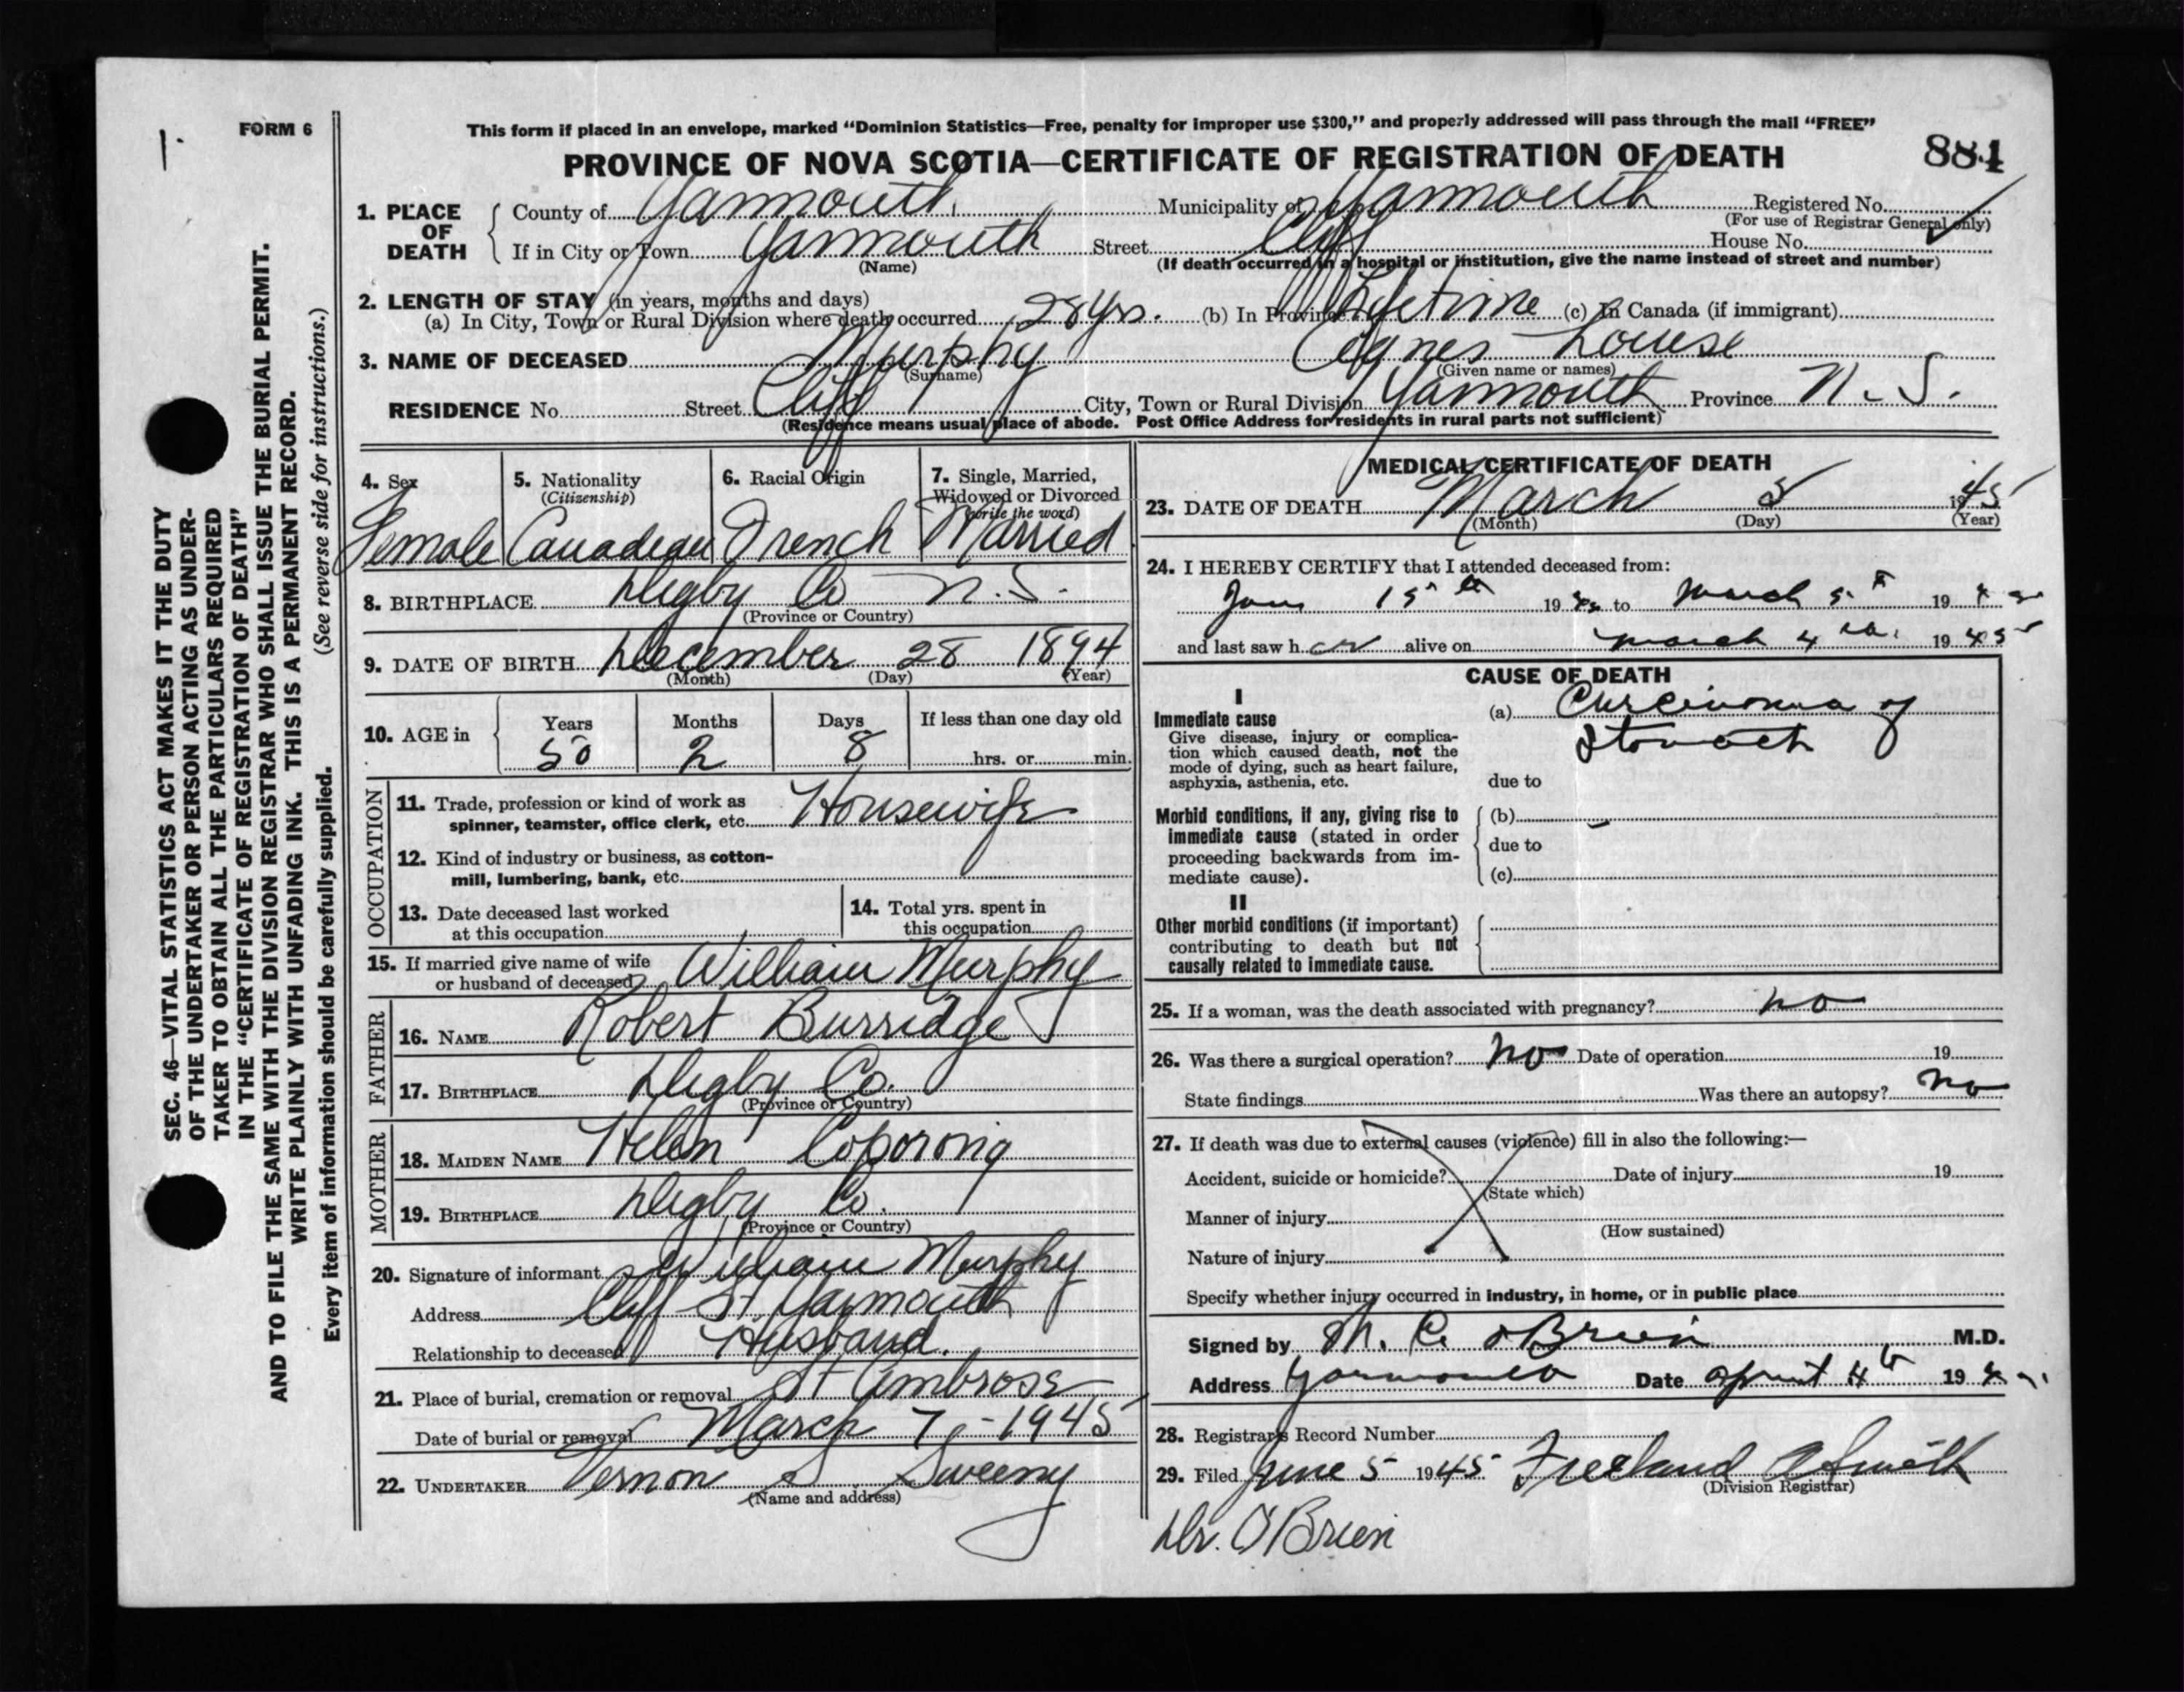 1.
FORM 6
This form if placed in an envelope, marked "Dominion Statistics—Free, penalty for improper use $300," and properly addressed will pass through the mail "FREE"
PROVINCE OF NOVA SCOTIA—CERTIFICATE OF REGISTRATION OF DEATH
884
SEC. 46—VITAL STATISTICS ACT MAKES IT THE DUTY
OF THE UNDERTAKER OR PERSON ACTING AS UNDER-
TAKER TO OBTAIN ALL THE PARTICULARS REQUIRED
IN THE "CERTIFICATE OF REGISTRATION OF DEATH"
AND TO FILE THE SAME WITH THE DIVISION REGISTRAR WHO SHALL ISSUE THE BURIAL PERMIT.
WRITE PLAINLY WITH UNFADING INK. THIS IS A PERMANENT RECORD.
Every item of information should be carefully supplied. (See reverse side for instructions.)
1. PLACE OF DEATH
County of Yarmouth Municipality of Yarmouth Registered No.
(For use of Registrar General only)
If in City or Town Yarmouth Street Cliff House No.
(Name) (If death occurred in a hospital or institution, give the name instead of street and number)
2. LENGTH OF STAY (in years, months and days)
(a) In City, Town or Rural Division where death occurred 28 yrs. (b) In Province Lifetime (c) In Canada (if immigrant)
3. NAME OF DECEASED Murphy Agnes Louise
(Surname) (Given name or names)
RESIDENCE No. Street Cliff City, Town or Rural Division Yarmouth Province N. S.
(Residence means usual place of abode. Post Office Address for residents in rural parts not sufficient)
4. Sex
Female
5. Nationality
(Citizenship)
Canadian
6. Racial Origin
French
7. Single, Married,
Widowed or Divorced
(write the word)
Married
8. BIRTHPLACE Digby Co N.S.
(Province or Country)
9. DATE OF BIRTH December 28 1894
(Month) (Day) (Year)
10. AGE in
Years Months Days If less than one day old
50 2 8 hrs. or min.
OCCUPATION
11. Trade, profession or kind of work as
spinner, teamster, office clerk, etc. Housewife
12. Kind of industry or business, as cotton-
mill, lumbering, bank, etc.
13. Date deceased last worked
at this occupation
14. Total yrs. spent in
this occupation
15. If married give name of wife
or husband of deceased William Murphy
FATHER
16. NAME Robert Burridge
17. BIRTHPLACE Digby Co.
(Province or Country)
MOTHER
18. MAIDEN NAME Helen
19. BIRTHPLACE Digby Co.
(Province or Country)
20. Signature of informant William Murphy
Address Cliff St Yarmouth
Relationship to deceased Husband.
21. Place of burial, cremation or removal St Ambrose
Date of burial or removal March 7 - 1945
22. UNDERTAKER Vernon S Sweeny
(Name and address)
MEDICAL CERTIFICATE OF DEATH
23. DATE OF DEATH March 5 1945
(Month) (Day) (Year)
24. I HEREBY CERTIFY that I attended deceased from:
Jan 15th 19 to March 5th 19
and last saw her alive on March 4th. 1945
CAUSE OF DEATH
I
Immediate cause
Give disease, injury or complica-
tion which caused death, not the
mode of dying, such as heart failure,
asphyxia, asthenia, etc.
(a) Carcinoma of
Stomach
due to
Morbid conditions, if any, giving rise to
immediate cause (stated in order
proceeding backwards from im-
mediate cause).
(b)
due to
(c)
II
Other morbid conditions (if important)
contributing to death but not
causally related to immediate cause.
25. If a woman, was the death associated with pregnancy? no
26. Was there a surgical operation? no Date of operation 19
State findings Was there an autopsy? no
27. If death was due to external causes (violence) fill in also the following:—
Accident, suicide or homicide? Date of injury 19
(State which)
Manner of injury
(How sustained)
Nature of injury
Specify whether injury occurred in industry, in home, or in public place
Signed by M. C. O'Brien M.D.
Address Yarmouth Date April 4th 19
28. Registrar's Record Number
29. Filed June 5 1945 Freeland A Smith
(Division Registrar)
Dr. O'Brien